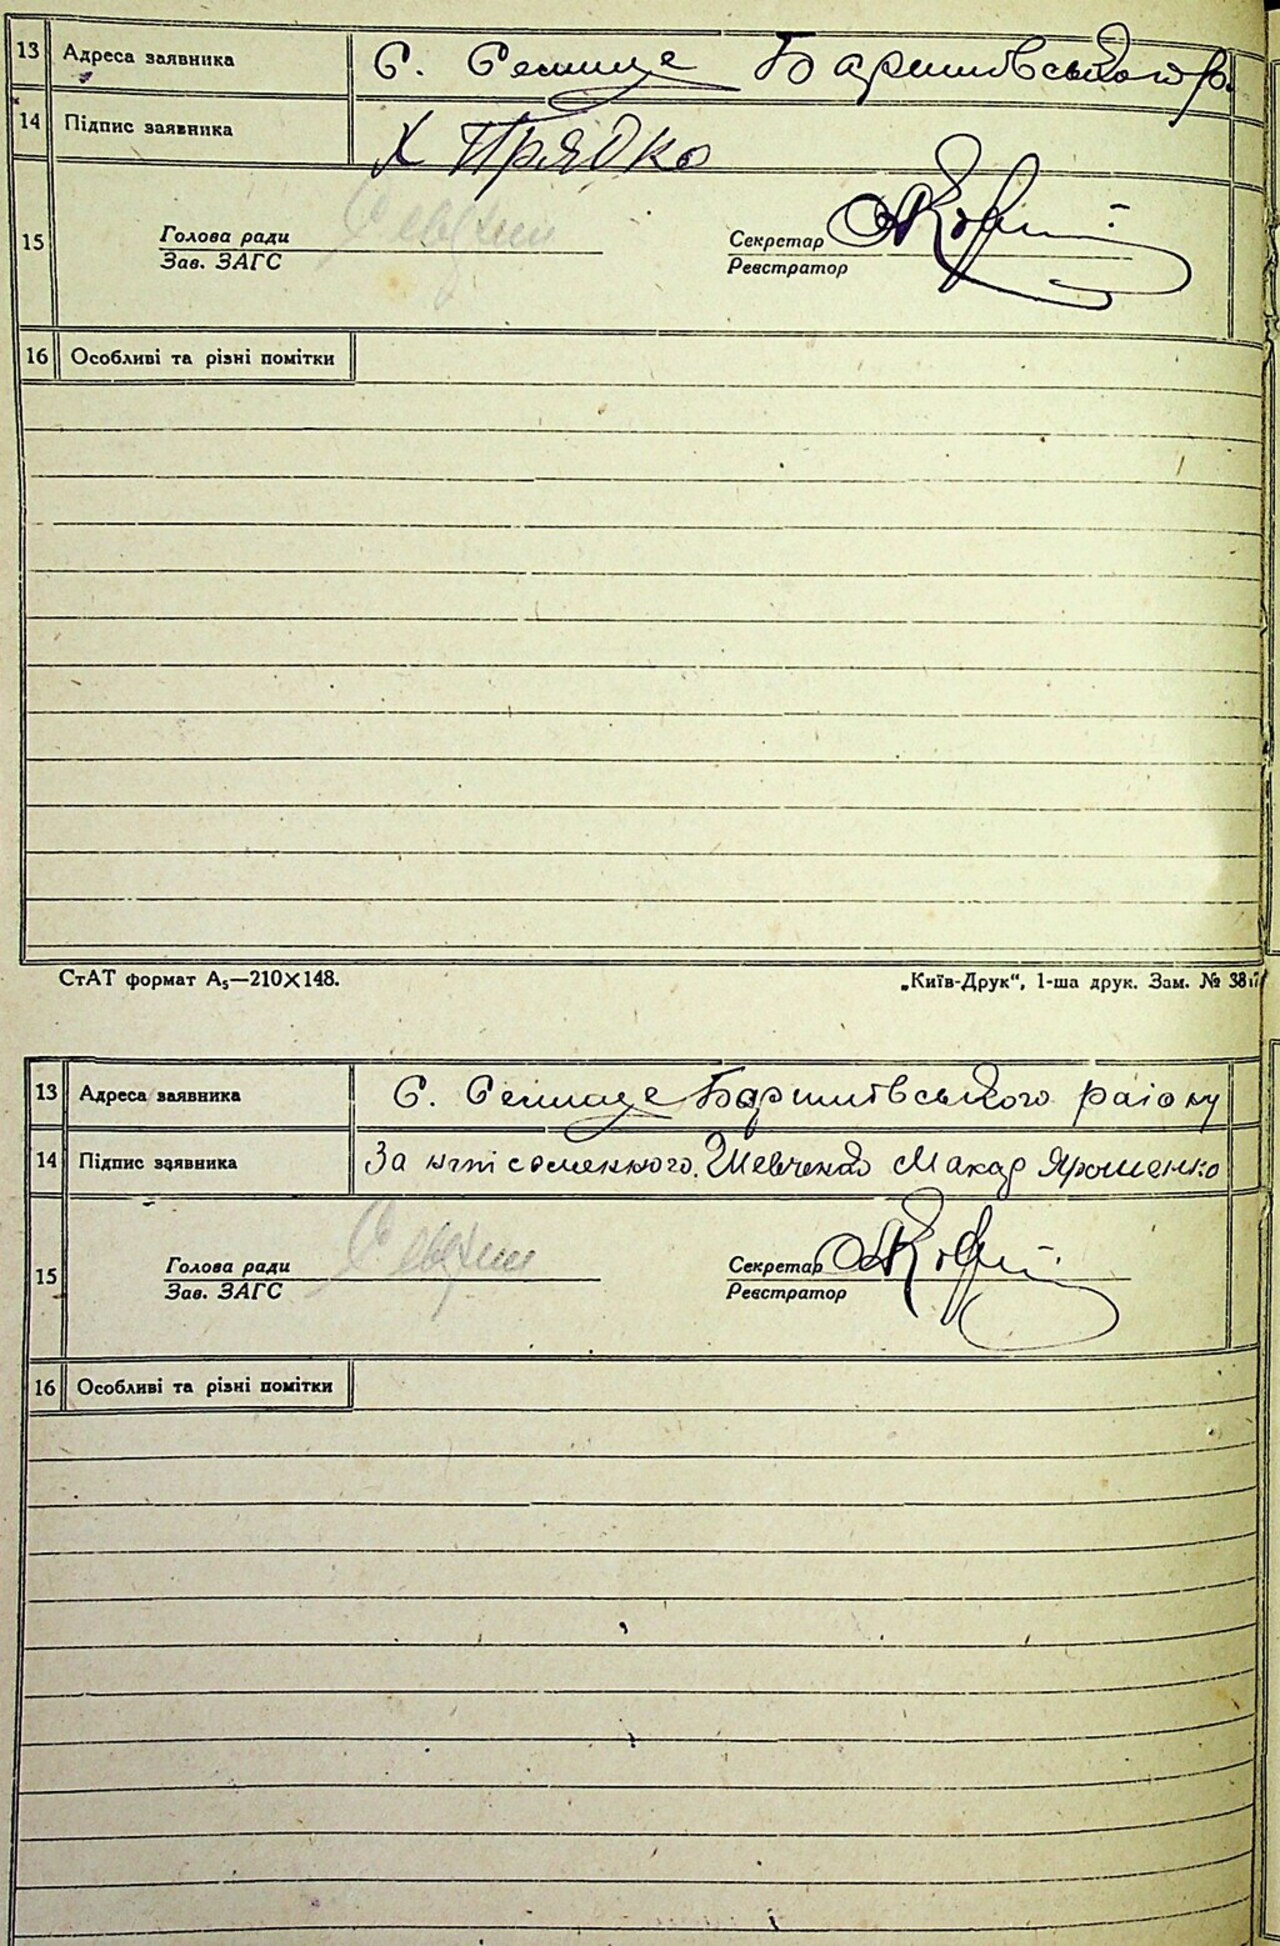 13 Адреса заявника С. Селище Баришівського р.
14 Підпис заявника Х Прядко
15 Голова ради Секретар
Зав. ЗАГС Реєстратор
16 Особливі та різні помітки
СтАТ формат А₅—210×148. „Київ-Друк“, 1-ша друк. Зам. №
13 Адреса заявника С. Селище Баришівського раіону
14 Підпис заявника За Шевченко Макар Ярошенко
15 Голова ради Секретар
Зав. ЗАГС Реєстратор
16 Особливі та різні помітки